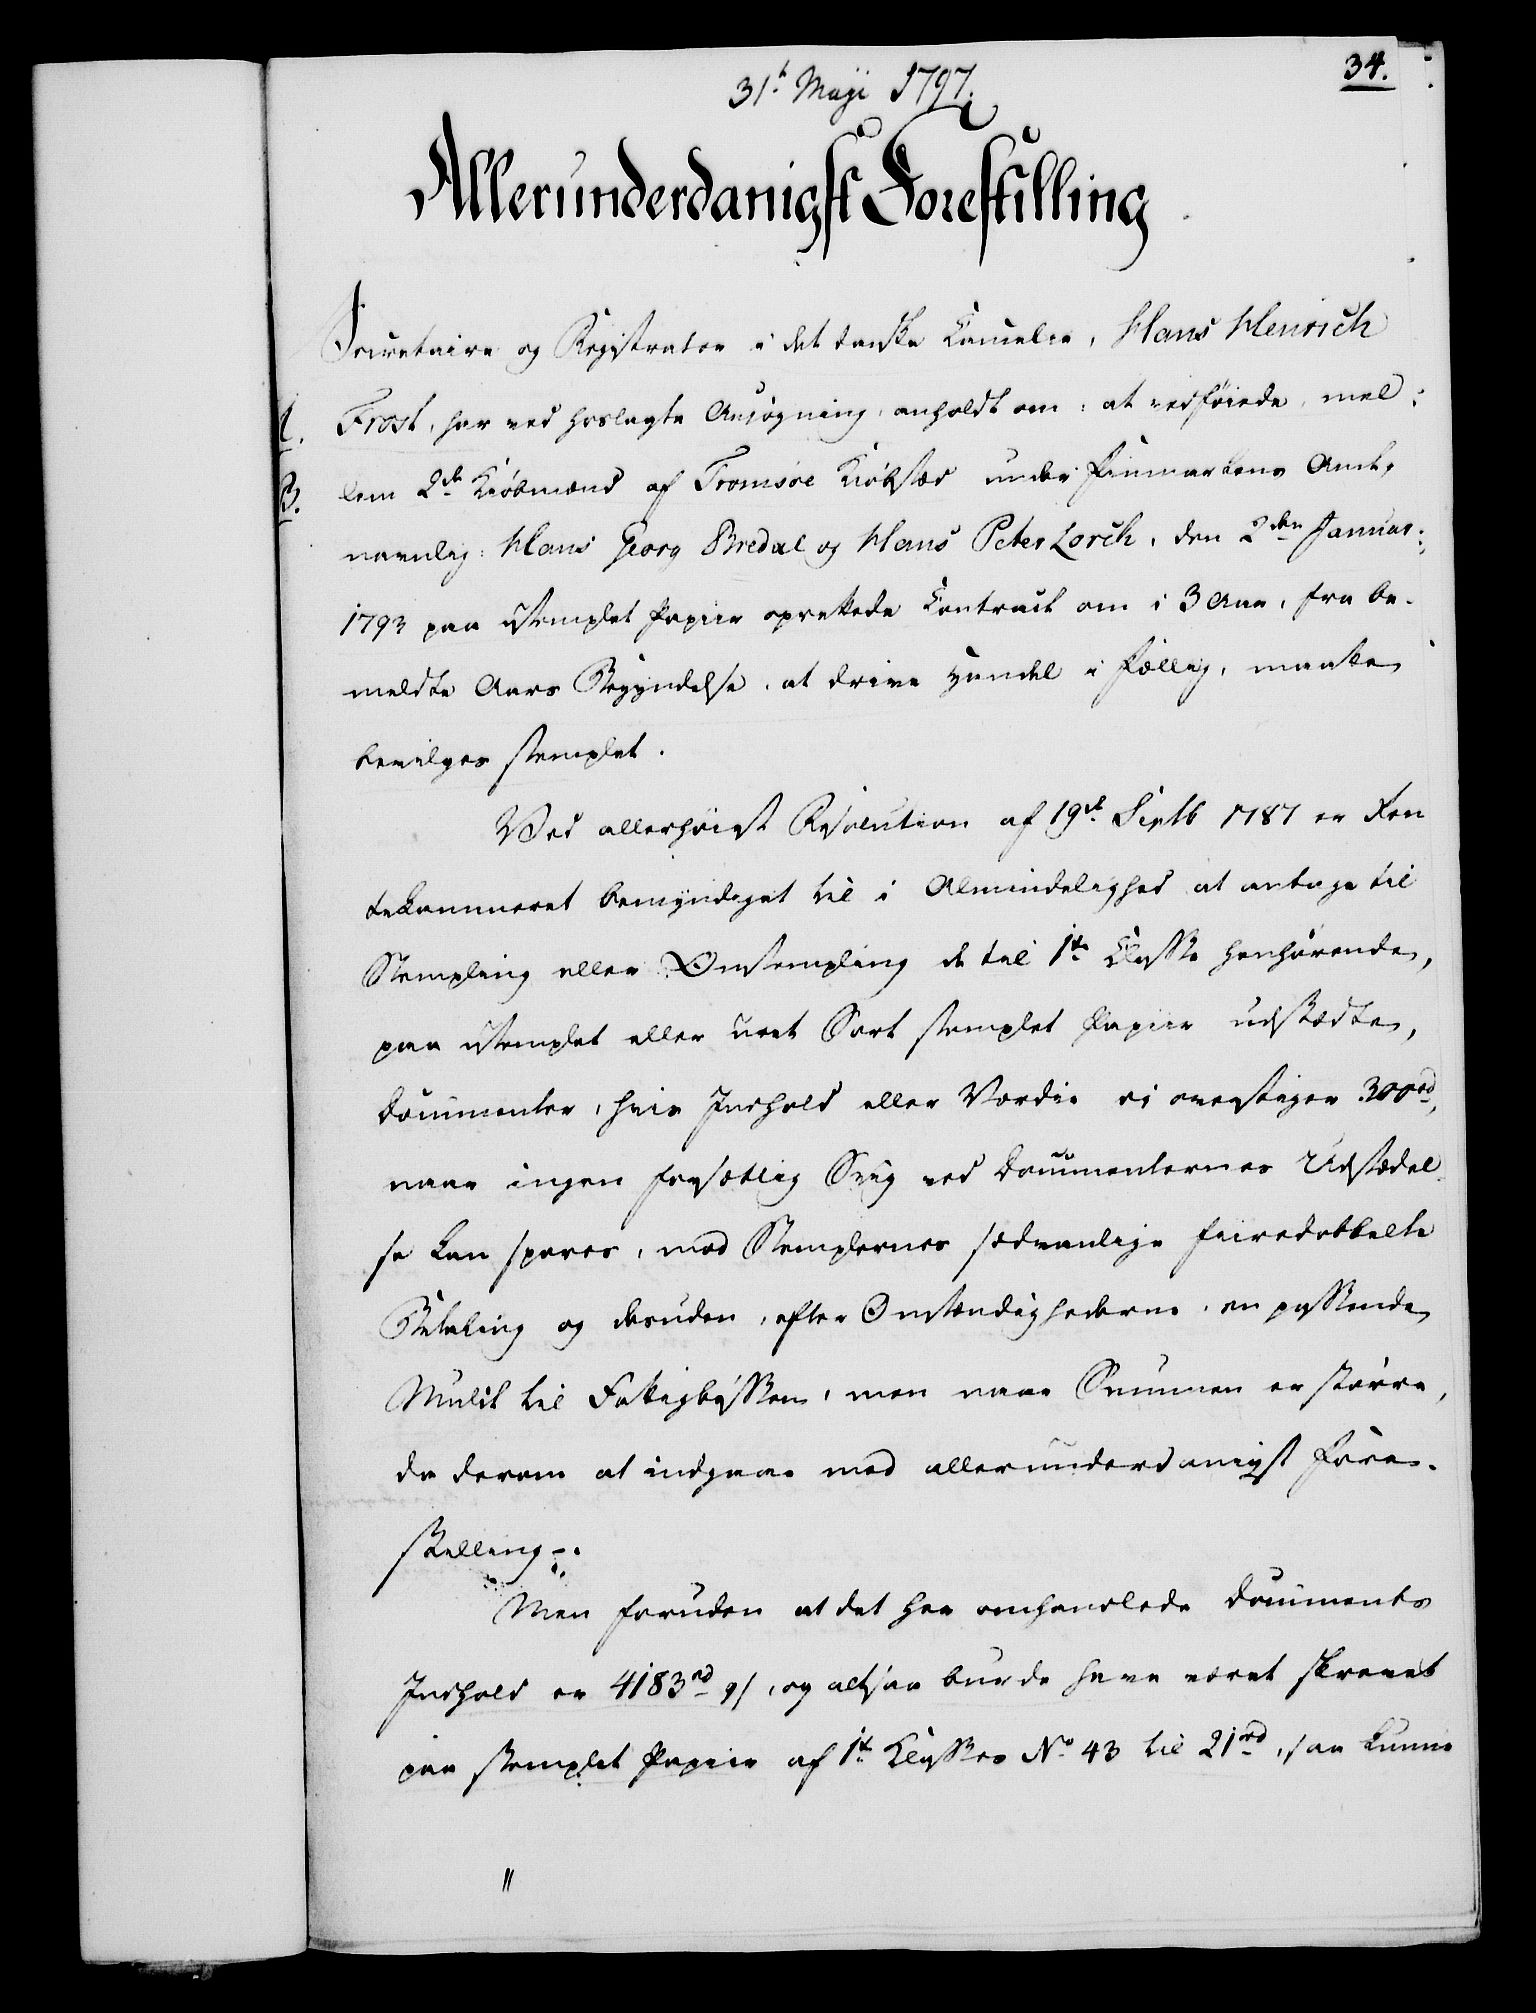 34.
31t Maji 1797.
Allerunderdanigst Forestilling
Secretaire og Registrator i det danske Cancelie, Hans Henrich
A. Frost, har ved hoslagte Ansøgning anholdt om: at vedføiede, mel:
B. lem 2de Kiøbmænd af Tromsøe Kiøbstæd under Finmarkens Amt,
navnlig: Hans Georg Bredal og Hans Peter Lorch, den 2den Januar:
1793 paa ustemplet Papiir oprettede Contract om i 3 Aar, fra be-
meldte Aars Begyndelse, at drive Handel i Fællig, maatte
bevilges stemplet.
Ved allerhøiest Resolution af 19de Septb 1787 er Ren
tekammeret bemyndiget til i Almindelighed at antage til
Stempling eller Omstempling de til 1te Classe henhørende,
paa ustemplet eller uret Sort stemplet Papiir udstædte,
Documenter, hvis Indhold eller Værdie ei overstiger 300rd,
naar ingen forsætlig Svig ved Documenternes Udstædel-
se kan spores, mod Stemplernes sædvanlige fiiredobbelte
Betaling og desuden, efter Omstændighederne, en passende
Mulct til Fattigbøssen, men naar Summen er større,
da derom at indgaae med allerunderdanigst Fore-
stilling.
Men foruden at det her omhandlede Documents
Indhold er 4183rd 9s, og altsaa burde have været skrevet
paa stemplet Papiir af 1te Classes No 43 til 21rd, saa kunne
"